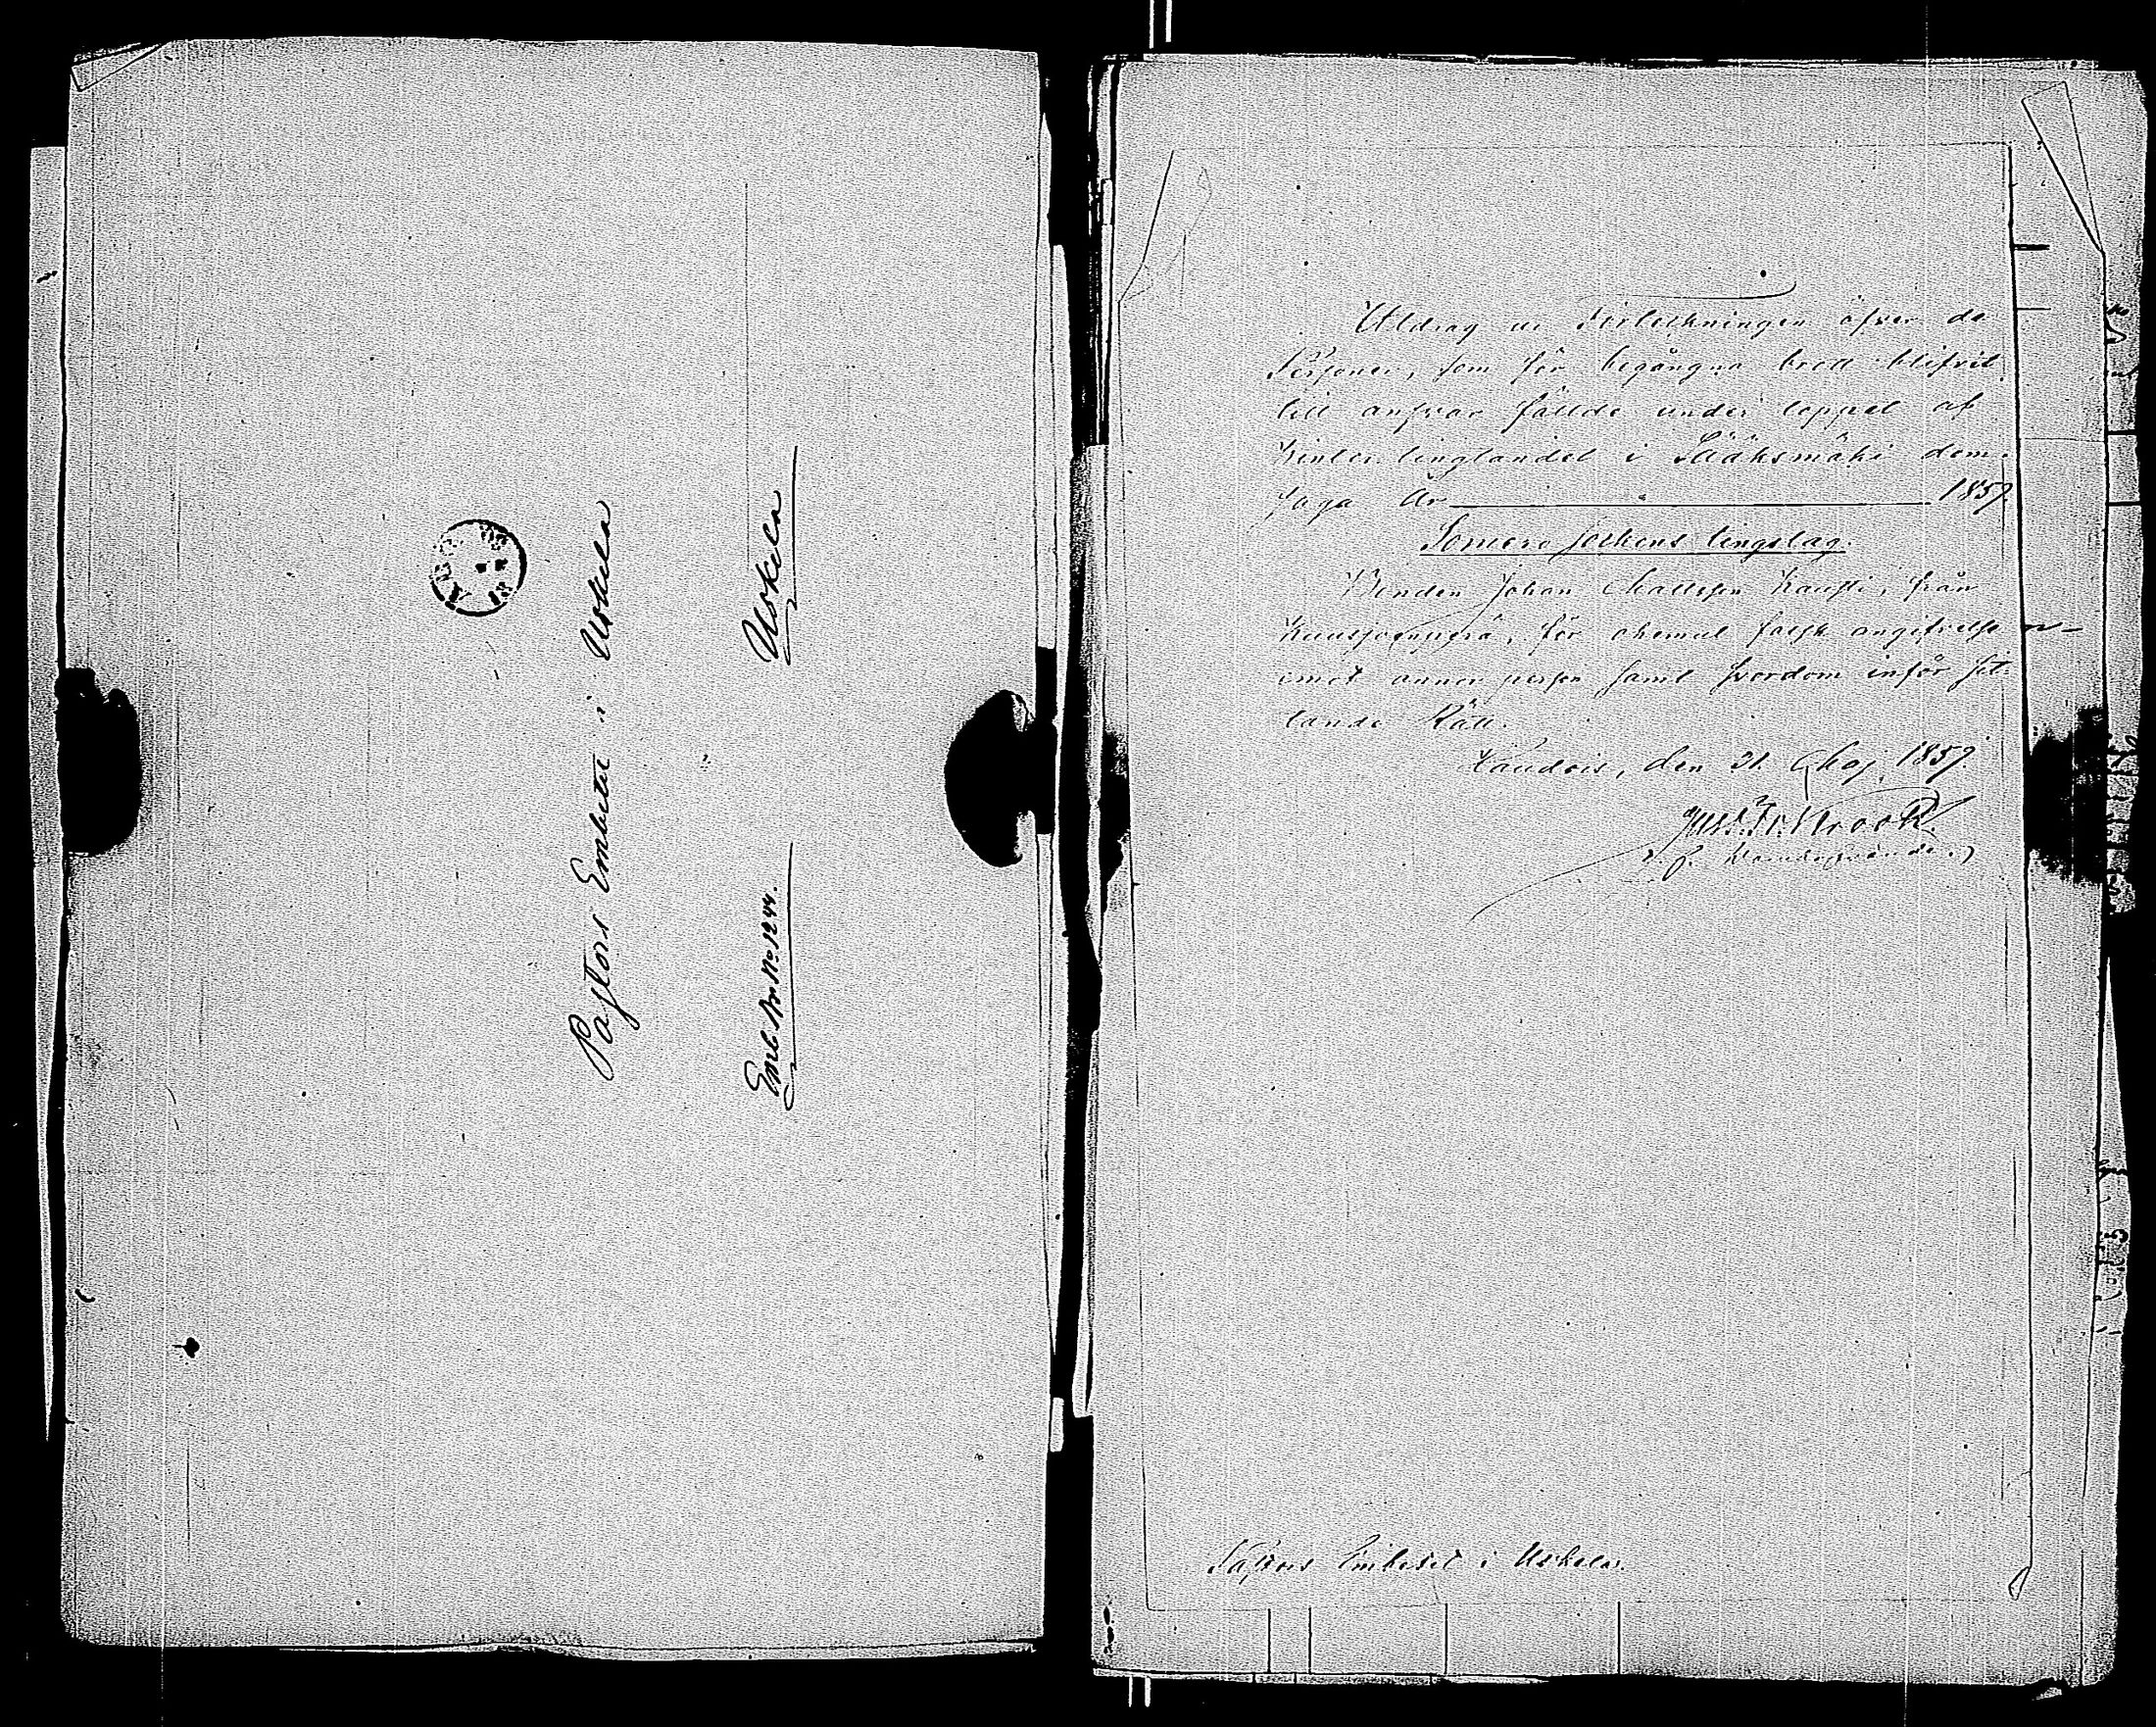 Pastors Embetet i Uskela
Uskela
Enl. Ar. No. 1244.
Utdrag ur Förteckningen öfver de
Personer, som för begångna brott blifvit
till ansvar fällde under loppet af
Vinter tingtandet i Sääksmäki dom-
saga År 1859.
Somero sockens tingslag.
Bonden Johan Mattsson Kausti, från
Kuusjoenperä, för ohemul falsk angifvelse
emot annan person samt svordom inför sit-
tande Rätt.
Haudois, den 31. Maj 1859.
Krook
Pastors Embetet i Uskela.